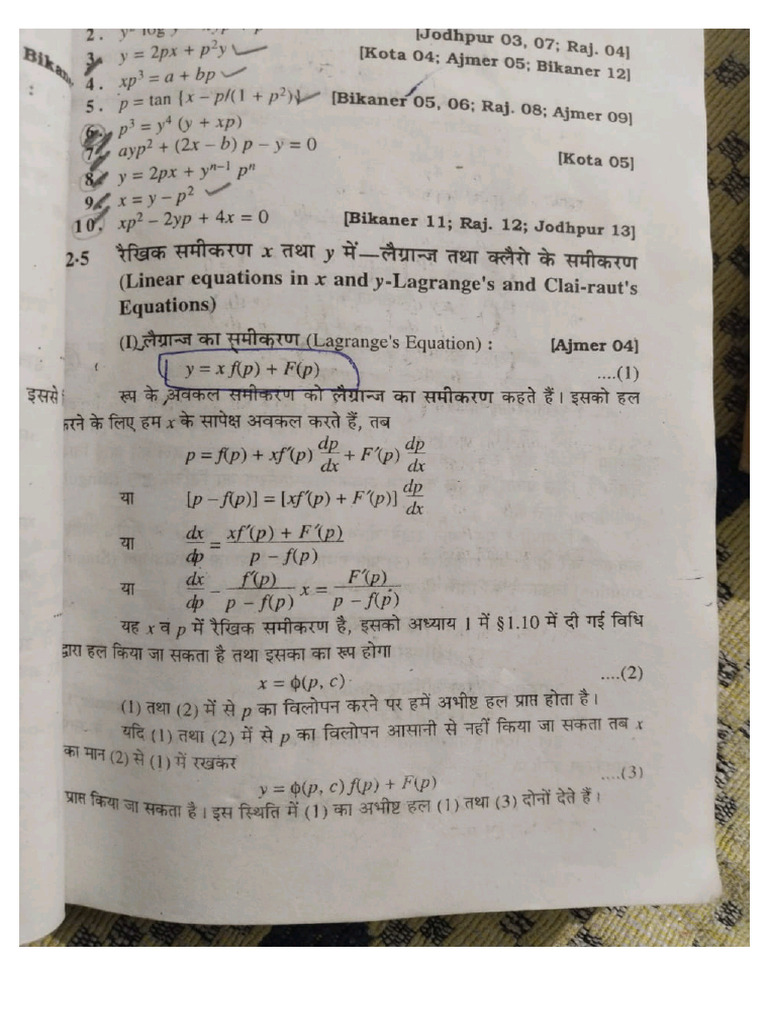 2. y² log y
[Jodhpur 03, 07; Raj. 04]
3. y = 2px + p²y
[Kota 04; Ajmer 05; Bikaner 12]
4. xp³ = a + bp
5. p = tan {x – p/(1 + p²)}
[Bikaner 05, 06; Raj. 08; Ajmer 09]
6. p³ = y⁴ (y + xp)
7. ayp² + (2x – b) p – y = 0
[Kota 05]
8. y = 2px + yⁿ⁻¹ pⁿ
9. x = y – p²
10. xp² – 2yp + 4x = 0
[Bikaner 11; Raj. 12; Jodhpur 13]
Bikan
:
2·5 रैखिक समीकरण x तथा y में—लैग्रान्ज तथा क्लैरो के समीकरण
(Linear equations in x and y-Lagrange's and Clai-raut's
Equations)
(I) लैग्रान्ज का समीकरण (Lagrange's Equation) : [Ajmer 04]
y = x f(p) + F(p) ....(1)
इससे
रूप के अवकल समीकरण को लैग्रान्ज का समीकरण कहते हैं। इसको हल
करने के लिए हम x के सापेक्ष अवकल करते हैं, तब
p = f(p) + xf′(p) dp/dx + F′(p) dp/dx
या [p – f(p)] = [xf′(p) + F′(p)] dp/dx
या dx/dp = xf′(p) + F′(p) / p – f(p)
या dx/dp – f′(p) / p – f(p) x = F′(p) / p – f(p)
यह x व p में रैखिक समीकरण है, इसको अध्याय 1 में §1.10 में दी गई विधि
द्वारा हल किया जा सकता है तथा इसका का रूप होगा
x = ϕ(p, c) ....(2)
(1) तथा (2) में से p का विलोपन करने पर हमें अभीष्ट हल प्राप्त होता है।
यदि (1) तथा (2) में से p का विलोपन आसानी से नहीं किया जा सकता तब x
का मान (2) से (1) में रखकर
y = ϕ(p, c) f(p) + F(p) ....(3)
प्राप्त किया जा सकता है। इस स्थिति में (1) का अभीष्ट हल (1) तथा (3) दोनों देते हैं।